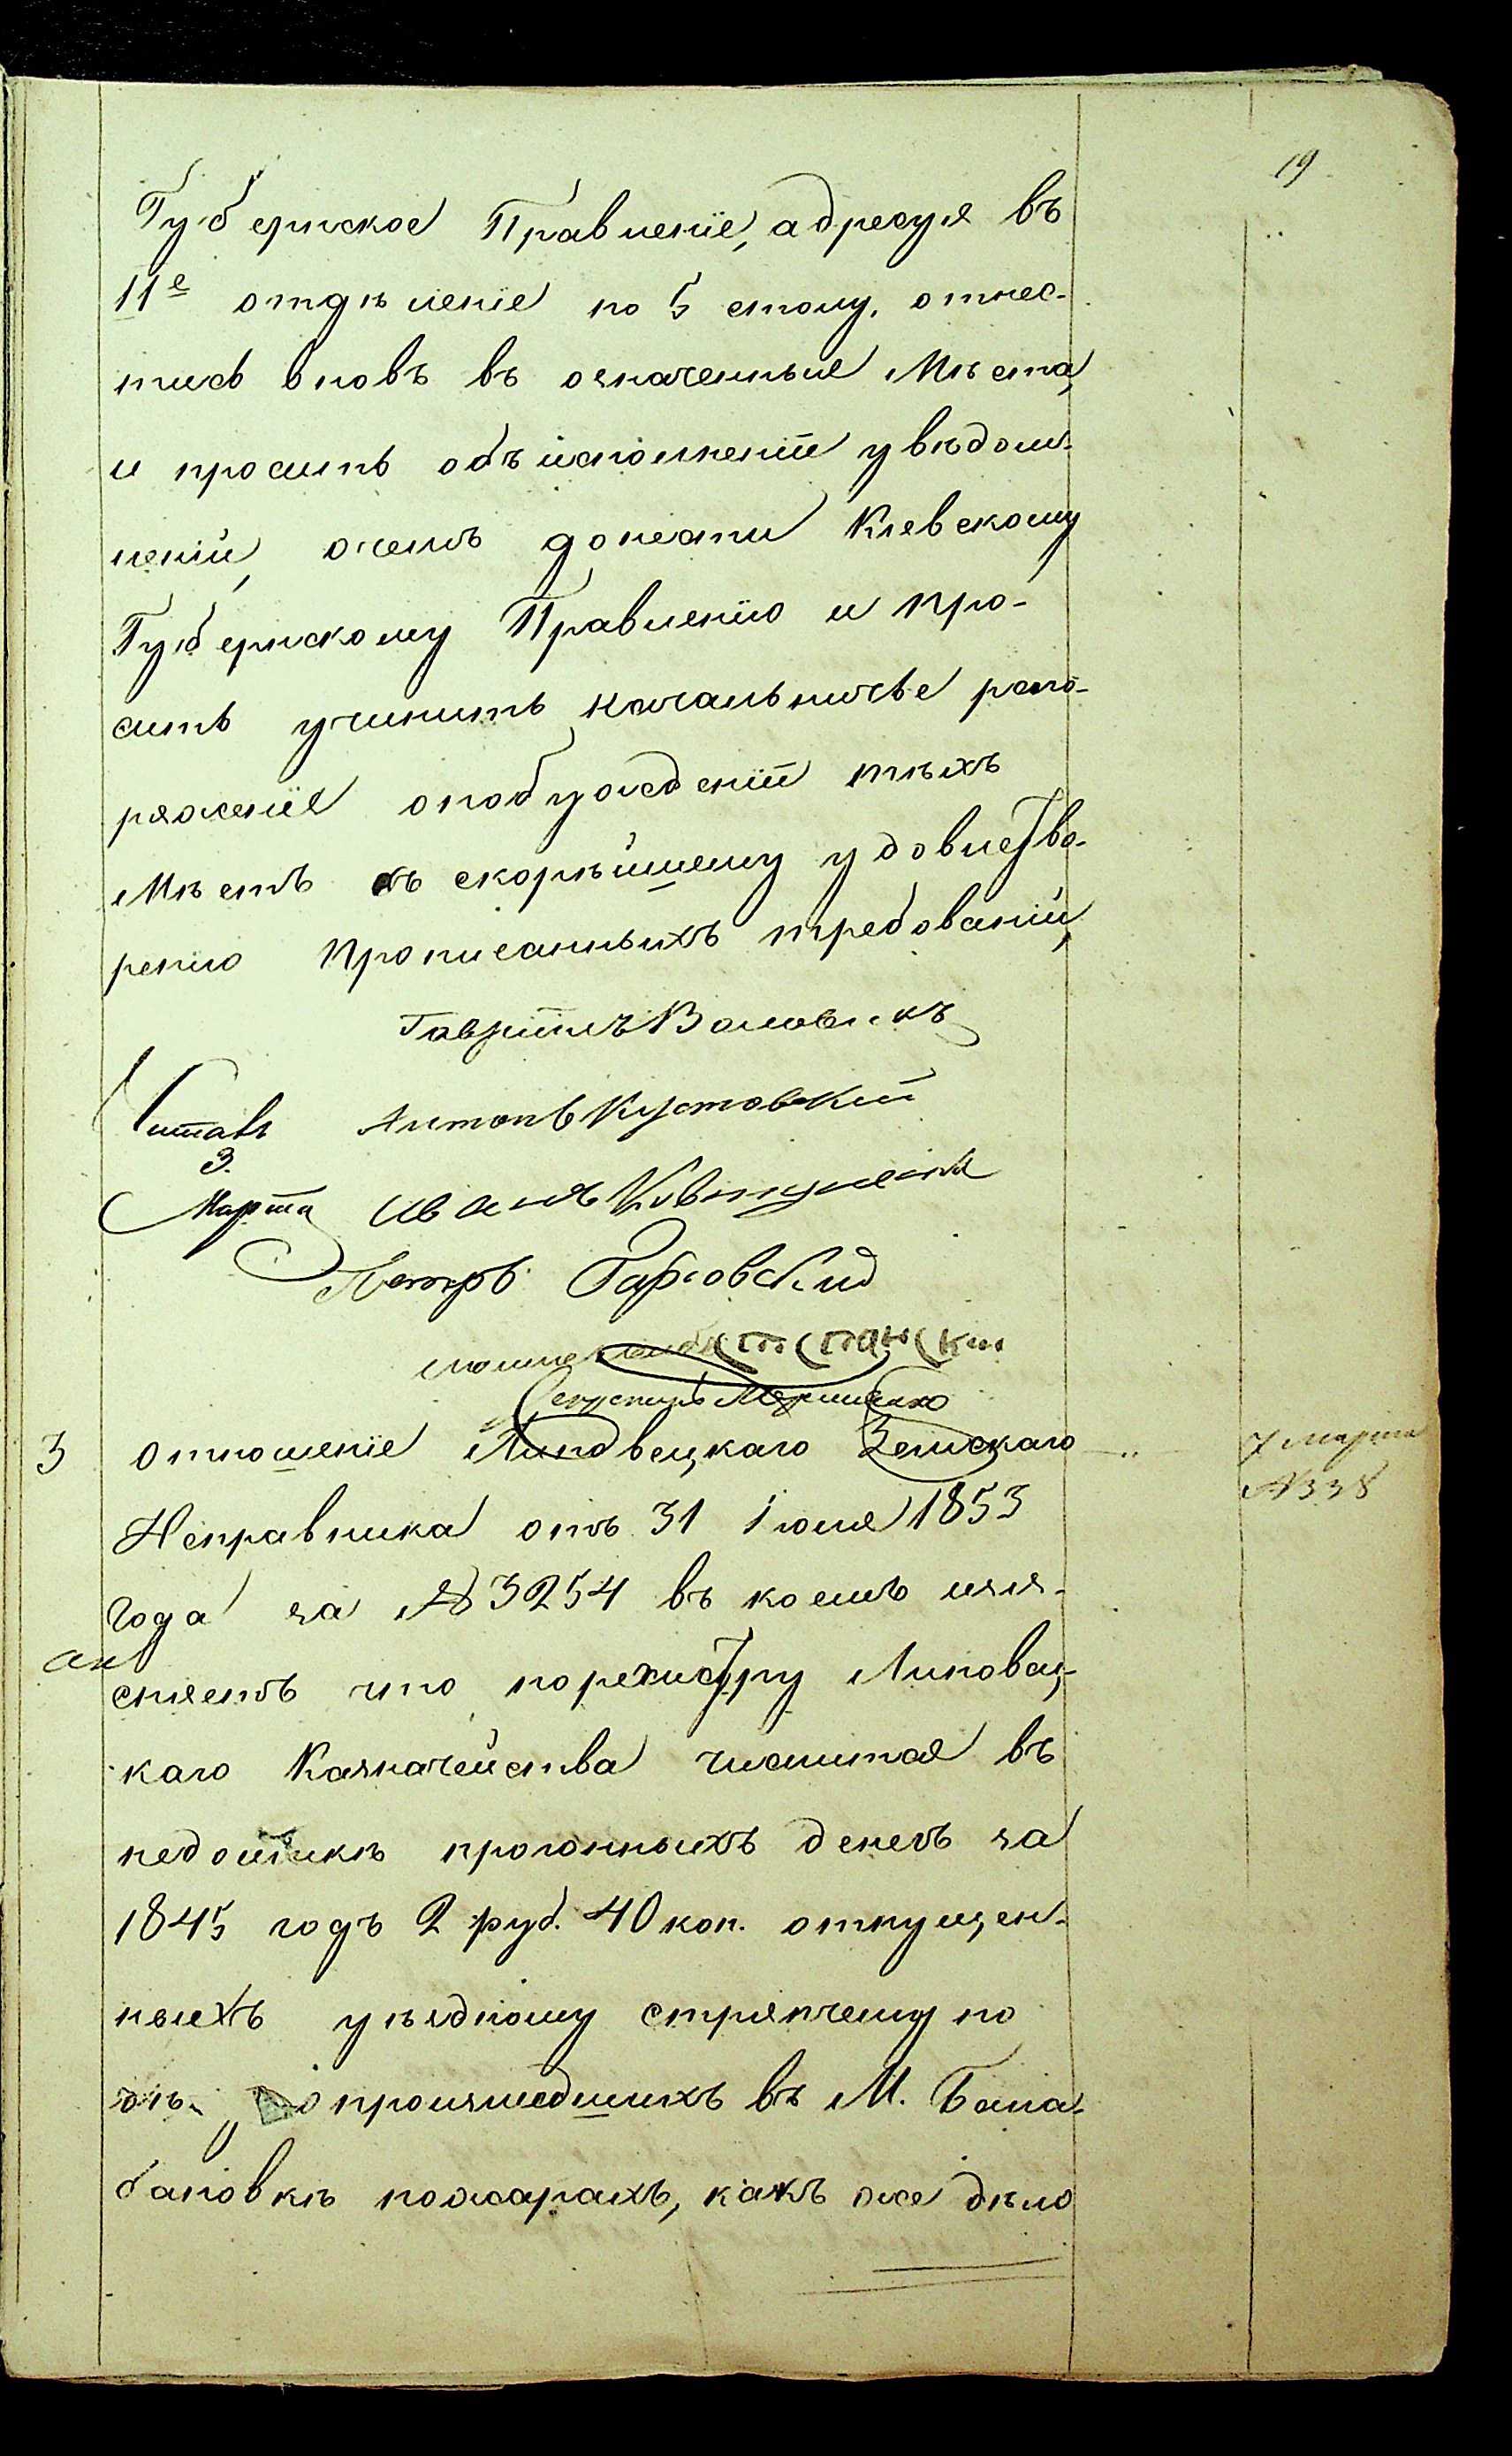 19
Губернское Правленіе, адресуя въ
11е отдѣленіе по 5 столу, отнес-
тись вновь въ означенные Мѣста,
и просить объ исполненіи увѣдом-
леній, очемъ донести Кіевскому
Губернскому Правленію и про-
сить учинить начальничье распо-
ряженіе опобужденіи тѣхъ
Мѣстъ къ скорѣйшему удовлетво-
ренію прописанныхъ требованій,
Гавріилъ Воловикъ
Читалъ Антонъ Кустовскій
3.
Марта Иванъ
Петръ
Секретарь
3 Отношеніе Липовецкаго Земскаго
7 Марта
№ 338
Исправника отъ 31 Іюля 1853
года за № 3254 въ коемъ изъя-
сняетъ что порехистру Липовец-
каго Казначейства числится въ
недоимкѣ прогонныхъ денегъ за
1845 годъ 2 руб. 40 коп. отпущен-
ныхъ уѣздному стряпчему по
дѣ. о произшедшихъ въ М. Бала-
бановкѣ пожарахъ, какъ же дѣло